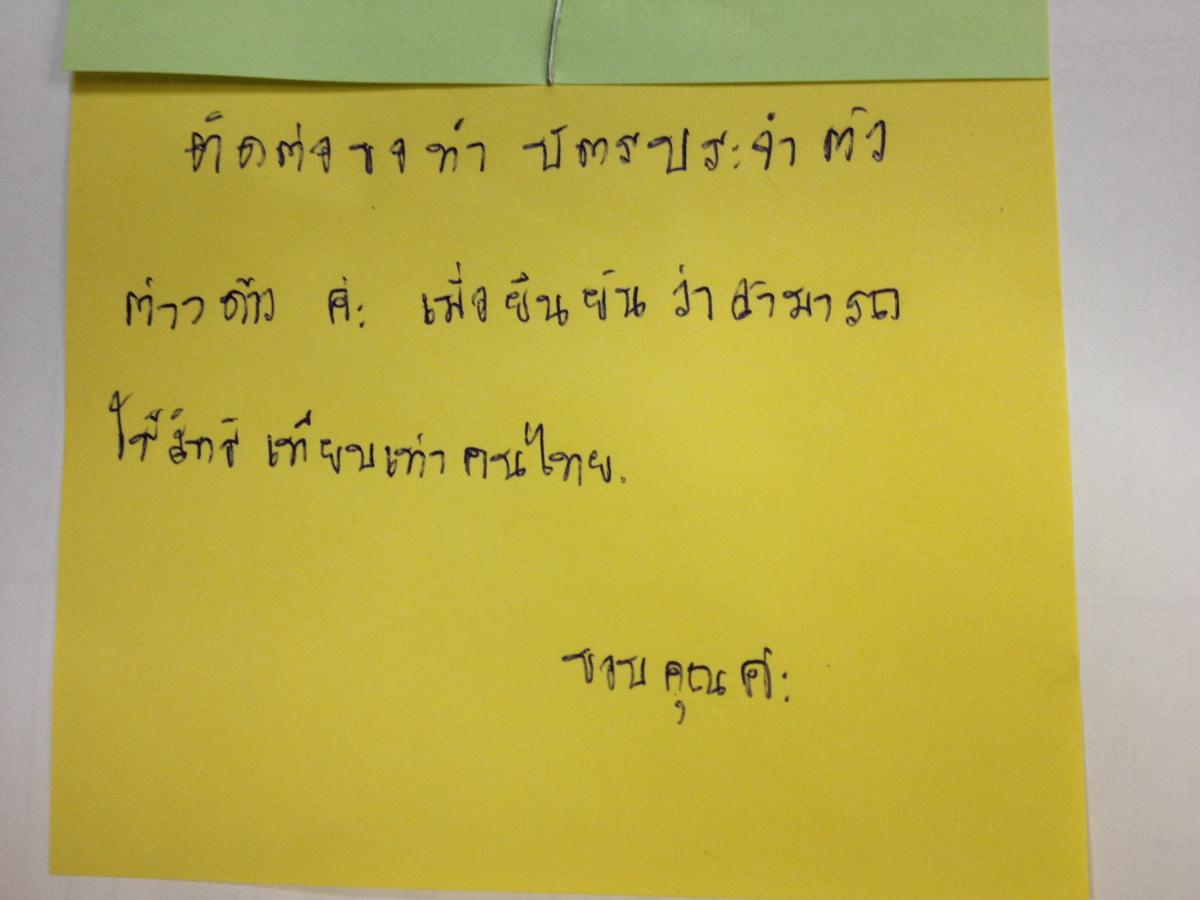 ติดต่อขอทำ บัตรประจำตัว
ต่างด้าว ค่ะ เพื่อยืนยันว่าสามารถ
ใช้สิทธิ เทียบเท่าคนไทย.
ขอบคุณค่ะ